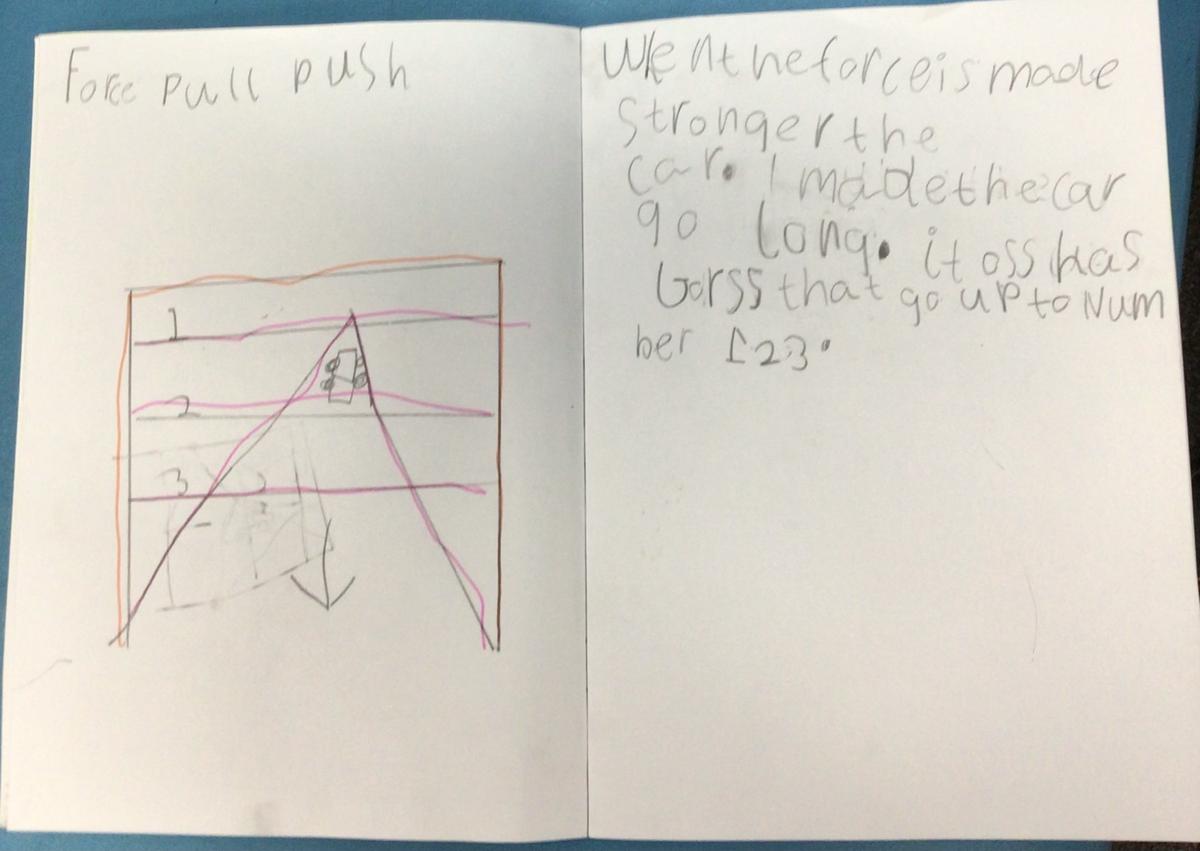 Force pull push
1
2
3
Wen the force is made
stronger the
car. I made the car
go long. it oss has
Gorss that go up to Num
ber 123.